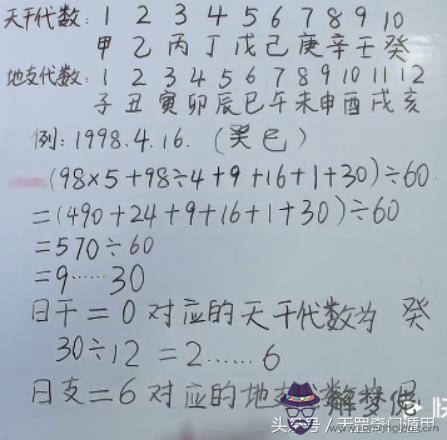 天干代数: 1 2 3 4 5 6 7 8 9 10
甲 乙 丙 丁 戊 己 庚 辛 壬 癸
地支代数: 1 2 3 4 5 6 7 8 9 10 11 12
子 丑 寅 卯 辰 巳 午 未 申 酉 戌 亥
例: 1998.4.16. (癸巳)
(98×5+98÷4+9+16+1+30)÷60
=(490+24+9+16+1+30)÷60
=570÷60
=9……30
日干=0 对应的天干代数为 癸
30÷12=2……6
日支=6 对应的地支
解梦佬
头条号/天罡奇门遁甲